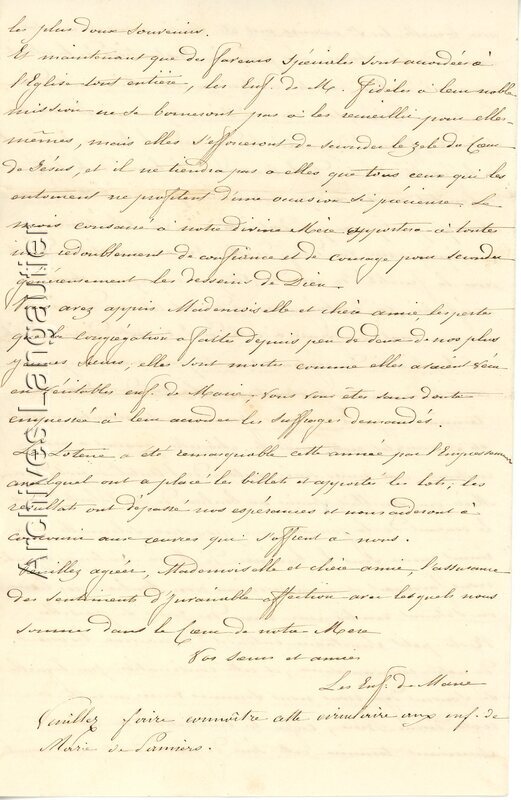 les plus doux souvenirs.
Et maintenant que des faveurs spéciales sont accordées à
l'Eglise tout entière, les Enf. de M. fidèles à leur noble
mission ne se borneront pas à les recueillir pour elles-
mêmes, mais elles s'efforceront de seconder le zèle du Cœur
de Jésus, et il ne tiendra pas à elles que tous ceux qui les
entourent ne profitent d'une occasion si précieuse. Le
mois consacré à notre divine Mère apportera à toutes
un redoublement de confiance et de courage pour seconder
généreusement les desseins de Dieu.
Vous avez appris Mademoiselle et chère amie les pertes
que la congrégation a faites depuis peu de deux de nos plus
jeunes sœurs, elles sont mortes comme elles avaient vécu
en véritables enf. de Marie. Vous vous êtes sans doute
empressée à leur accorder les suffrages demandés.
La Loterie a été remarquable cette année par l'Empressement
avec lequel on a placé les billets et apporté les lots; les
résultats ont dépassé nos espérances et nous aideront à
concourir aux œuvres qui s'offrent à nous.
Veuillez agréer, Mademoiselle et chère amie, l'assurance
des sentiments d'inviolable affection avec lesquels nous
sommes dans le Cœur de notre Mère
Vos sœurs et amies
Les Enf. de Marie
Veuillez faire connaître cette circulaire aux enf. de
Marie de Pamiers.
Archives Langautier